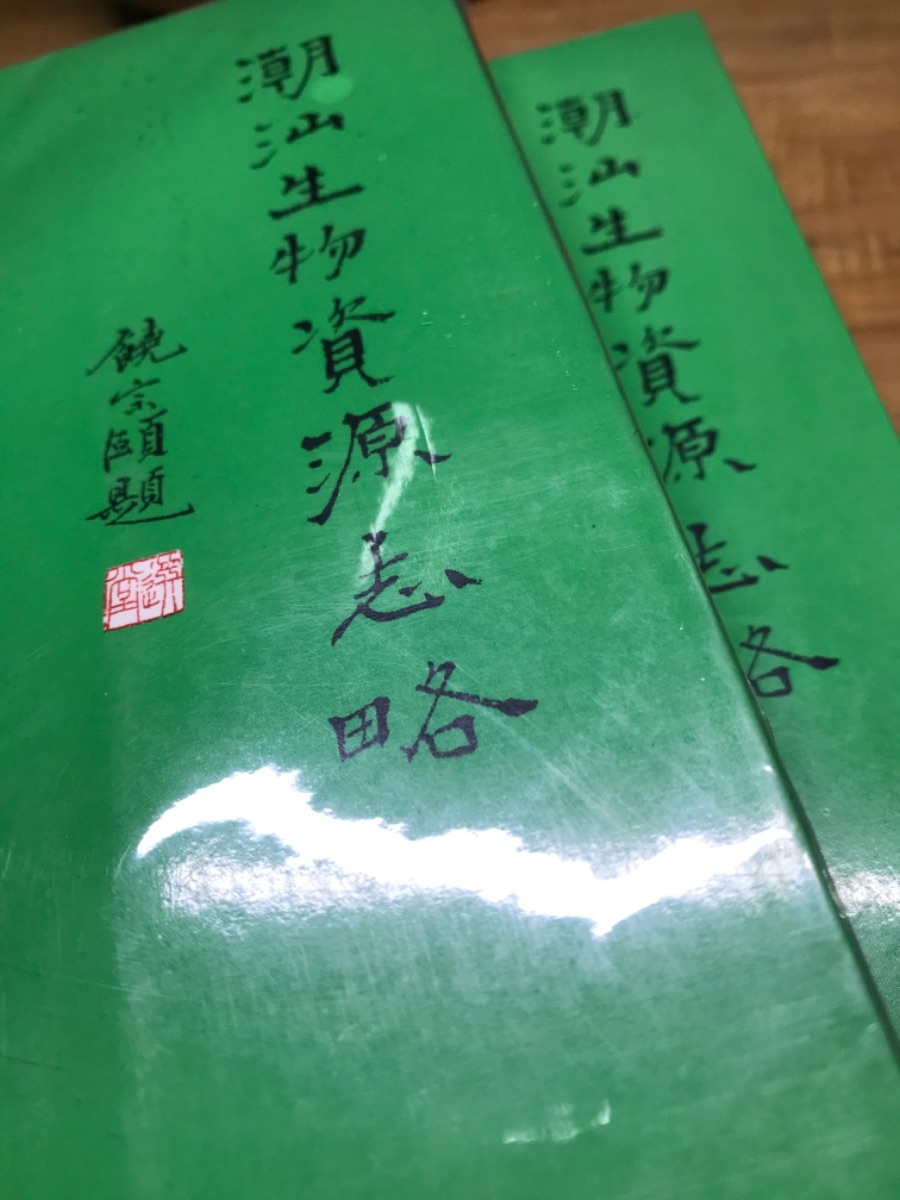 潮汕生物資源志略
饒宗頤題
選堂
潮汕生物資源志略